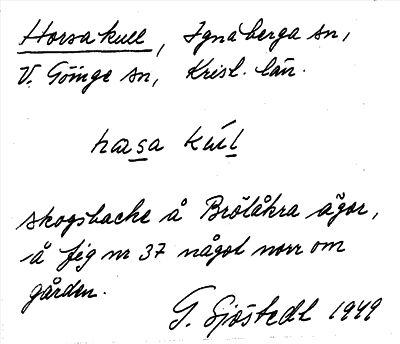 Horsakull, Ignaberga sn,
V. Göinge sn, Krist. län.
hasa kul
skogsbacke å Brölåkra ägor,
å fig nr 37 något norr om
gården.
G. Sjöstedt 1949